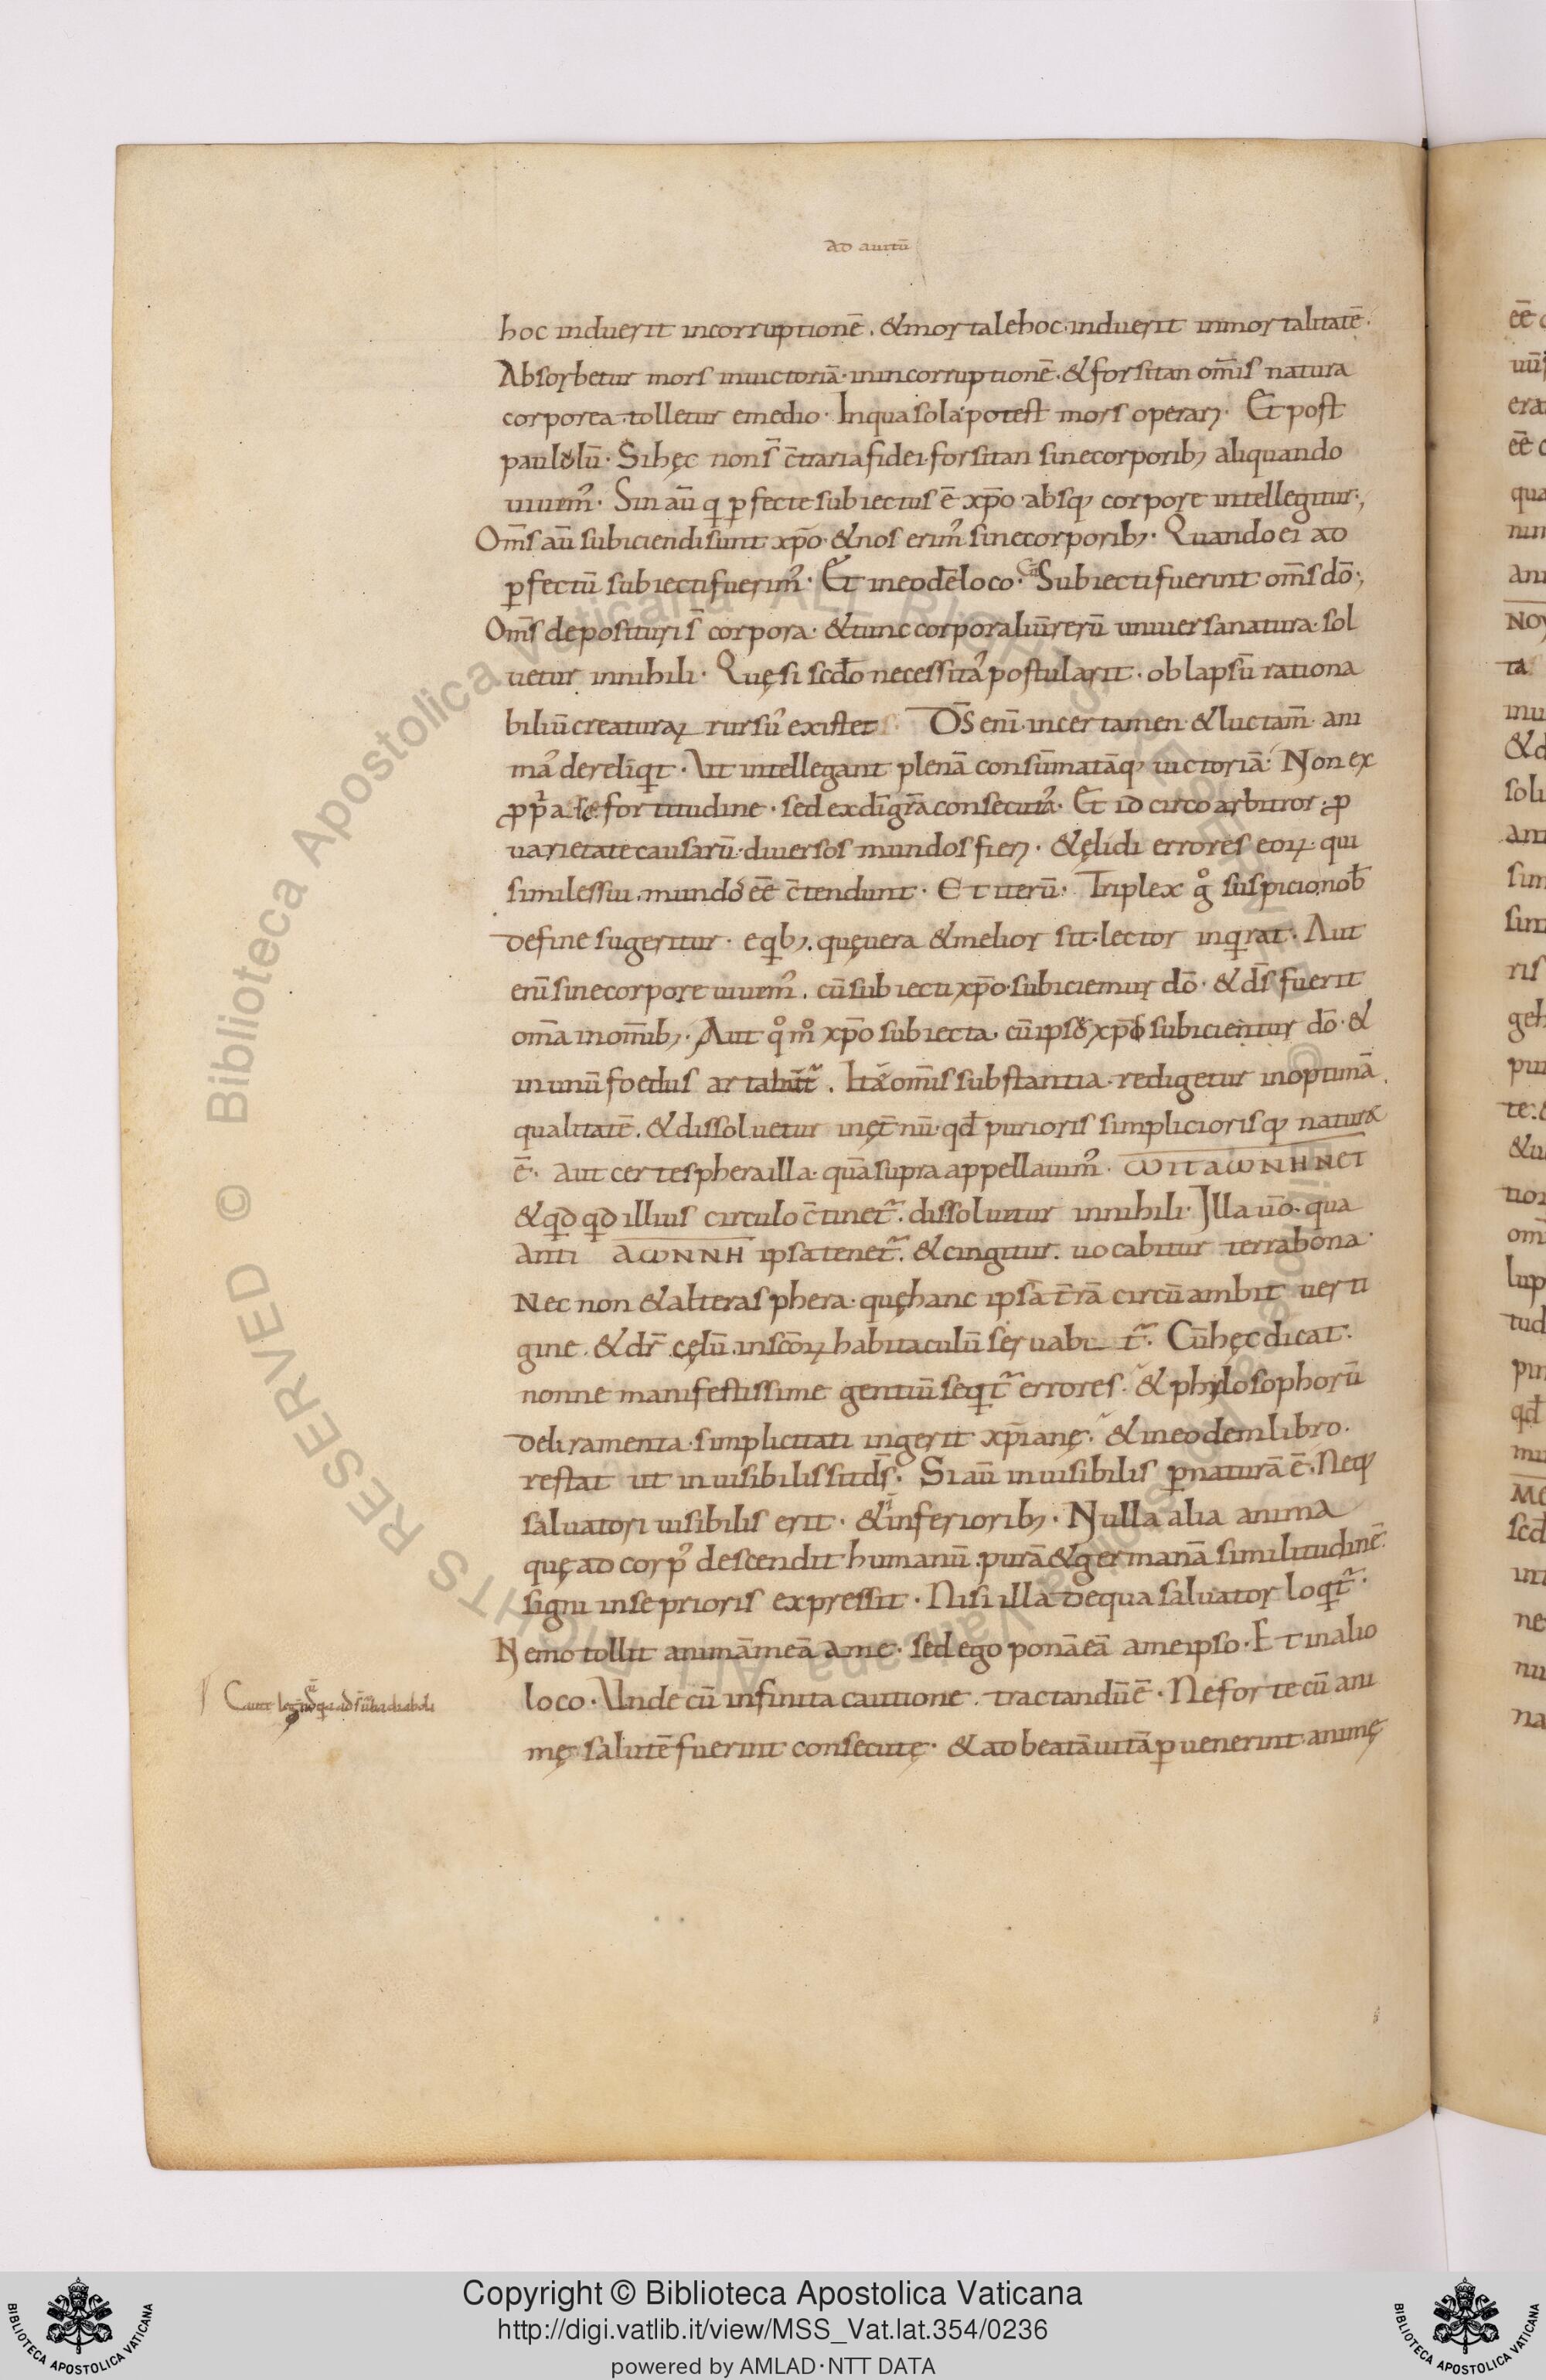 ad auitū
hoc induerit incorruptionē. & mortale hoc induerit inmortalitatē.
Absorbetur mors in uictoriā. in incorruptionē. & forsitan om̄is natura
corporea tolletur e medio. In qua sola potest mors operari. Et post
paululū. Si hęc non s̄ c̄traria fidei. forsitan sine corporib; aliquando
uiuem᾽. Sin aū q̣ ꝑfecte subiectus ē xp̄o absq; corpore intellegitur;
Om̄s aū subiciendi sunt xp̄o. & nos erim᾽ sine corporib;. Quando ei ad
ꝑfectū subiecti fuerim᾽. Et in eodē loco. Subiecti fuerint om̄s dō;
Om̄s deposituri s̄ corpora. & tunc corporaliū rerū uniuersa natura sol
uetur in nihili. Quę si sc̄do necessita᾽ postularit. ob lapsū rationa
biliū creaturaꝝ rursū existet. D̄S enī in certamen & luctam̄ ani
ma᾽ dereliqͥt. Ut intellegant plenā consūmatāq; uictoriā. Non ex
ꝓpͥa se fortitudine. sed ex dī gr̄a consecuta᾽. Et idcirco arbitror ꝓ
uarietate causarū diuersos mundos fieri. & ęlidi errores eoꝝ qui
similes sui mundo ēē c̄tendunt. Et iterū. Triplex gͦ suspicio nob̄
de fine sugeritur. e qͥb;. quę uera & melior sit lector inqͥrat. Aut
enī sine corpore uiuem᾽. cū subiecti xp̄o subiciemur dō. & d̄s fuerit
om̄a in om̄ib;. Aut qͦmͦ xp̄o subiecta cū ipso xp̄o subicientur dō. &
in unū foedus artabūt᷑. Ita om̄is substantia redigetur in optimā
qualitatē. & dissoluetur in ęt̄nū. qd̄ purioris simpliciorisq; natura
ē. Aut certe sphera illa. quā supra appellauim᾽. ⲰΙΤΑⲰΝΗΝΕΙ
& qͥdqͥd illius circulo c̄tinet᷑. dissoluitur in nihili. Illa ūo. qua
anti ΑⲰΝΝΗ ipsa tenet᷑. & cingitur. uocabitur terra bona.
Nec non & altera sphera. quę hanc ipsā t̄rā circū ambit uerti
gine. & dr̄ cęlū. in sc̄oꝝ habitaculū seruabit᷑. Cū hęc dicat.
nonne manifestissime gentiū seqͥt᷑ errores. & phylosophorū
deliramenta simplicitati ingerit xp̄ianę. & in eodem libro.
restat ut inuisibilis sit d̄s. Si aū inuisibilis ꝑ naturā ē. Neq;
saluatori uisibilis erit. & inferiorib;. Nulla alia anima
quę ad corp᾽ descendit humanū. purā & germanā similitudinē
signi in se prioris expressit. Nisi illa de qua saluator loqͥt᷑.
Nemo tollit animā meā a me. sed ego ponā eā a me ipso. Et in alio
loco. Unde cū infinita cautione tractandū ē. Ne forte cū ani
mę salutē fuerint consecutę. & ad beatā uitā ꝑuenerint animę
Copyright © Biblioteca Apostolica Vaticana
http://digi.vatlib.it/view/MSS_Vat.lat.354/0236
powered by AMLAD·NTT DATA
BIBLIOTECA APOSTOLICA VATICANA
BIBLIOTECA APOSTOLICA VATICANA